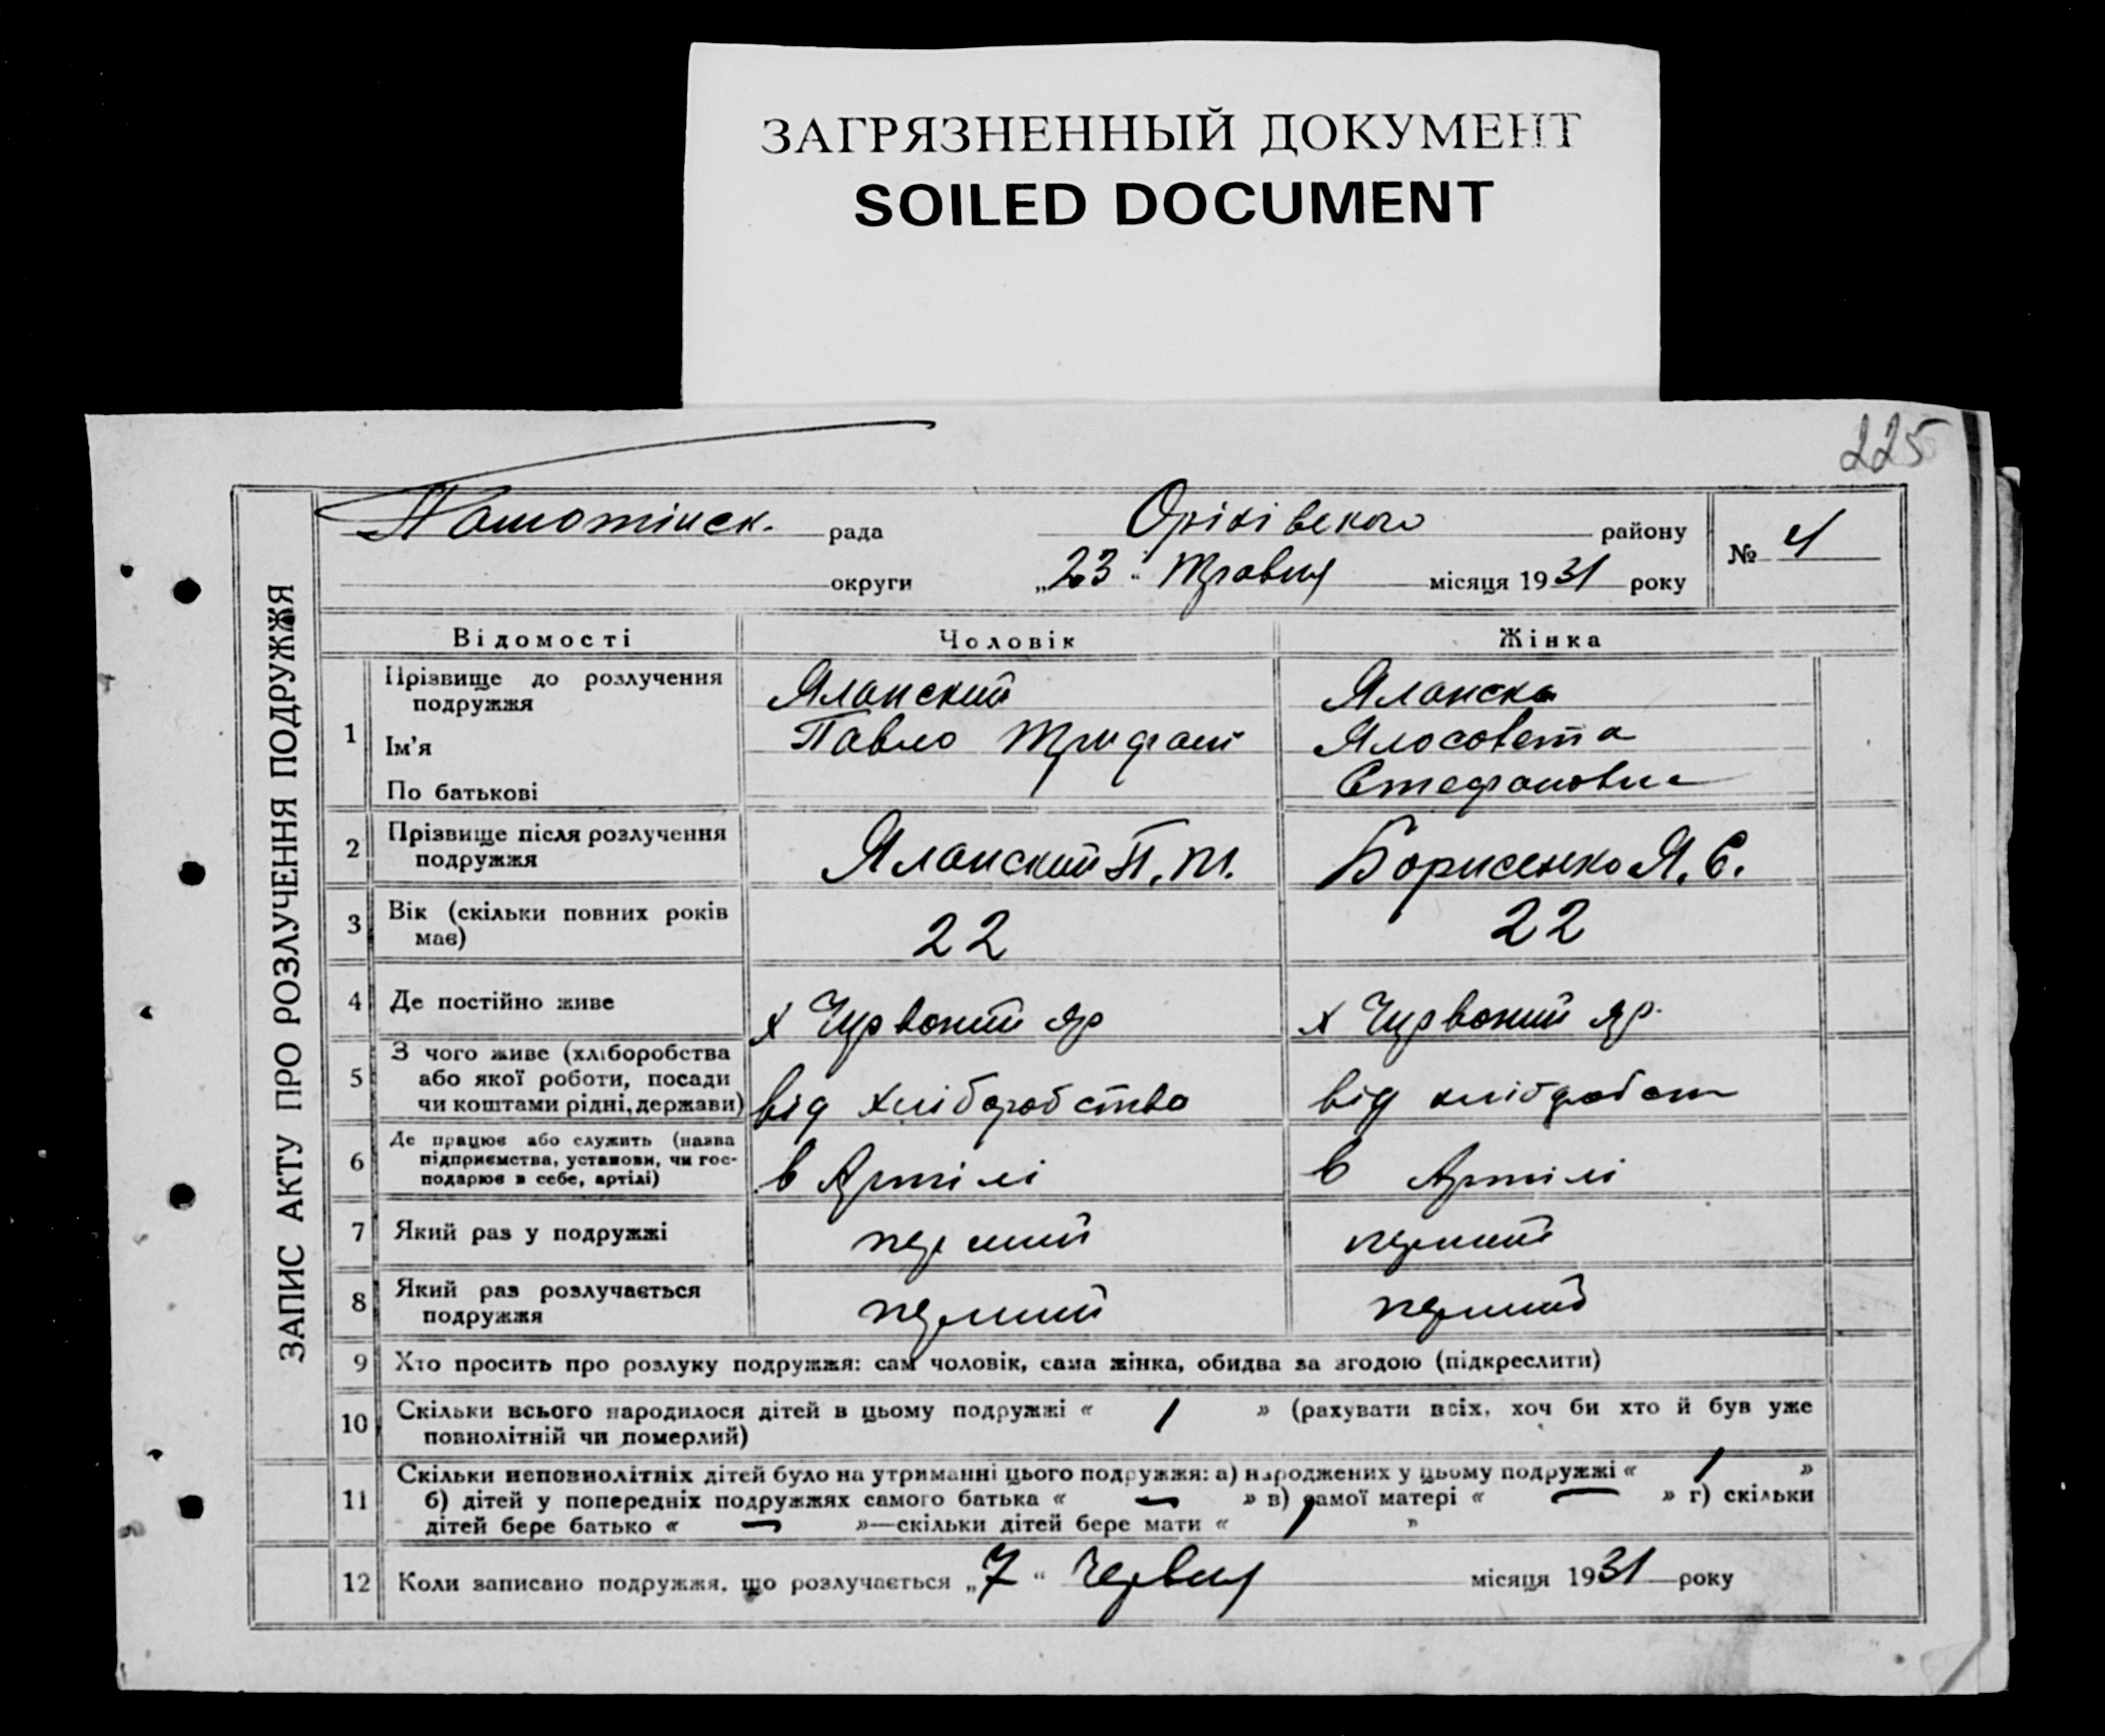 ЗАГРЯЗНЕННЫЙ ДОКУМЕНТ
SOILED DOCUMENT
225
ЗАПИС АКТУ ПРО РОЗЛУЧЕННЯ ПОДРУЖЖЯ
рада Оріхівського району № 4
округи „23“ Травня місяця 1931 року
Відомості Чоловік Жінка
1 Прізвище до розлучення подружжя Яланский Яланска
Ім'я Павло Трифан Ялосовета
По батькові Стефановна
2 Прізвище після розлучення подружжя Яланский П. Т. Борисенко Я. С.
3 Вік (скільки повних років має) 22 22
4 Де постійно живе х Червоний яр х Червоний яр.
5 З чого живе (хліборобства або якої роботи, посади чи коштами рідні, держави) від хліборобства від хліборобст
6 Де працює або служить (назва підприємства, установи, чи господарює в себе, артілі) в Артілі в Артілі
7 Який раз у подружжі перший перший
8 Який раз розлучається подружжя перший перший
9 Хто просить про розлуку подружжя: сам чоловік, сама жінка, обидва за згодою (підкреслити)
10 Скільки всього народилося дітей в цьому подружжі « 1 » (рахувати всіх, хоч би хто й був уже
повнолітній чи померлий)
11 Скільки неповнолітніх дітей було на утриманні цього подружжя: а) народжених у цьому подружжі « 1 »
б) дітей у попередніх подружжях самого батька « — » в) самої матері « — » г) скільки
дітей бере батько « — »—скільки дітей бере мати « 1 »
12 Коли записано подружжя, що розлучається „7“ Червня місяця 1931 року